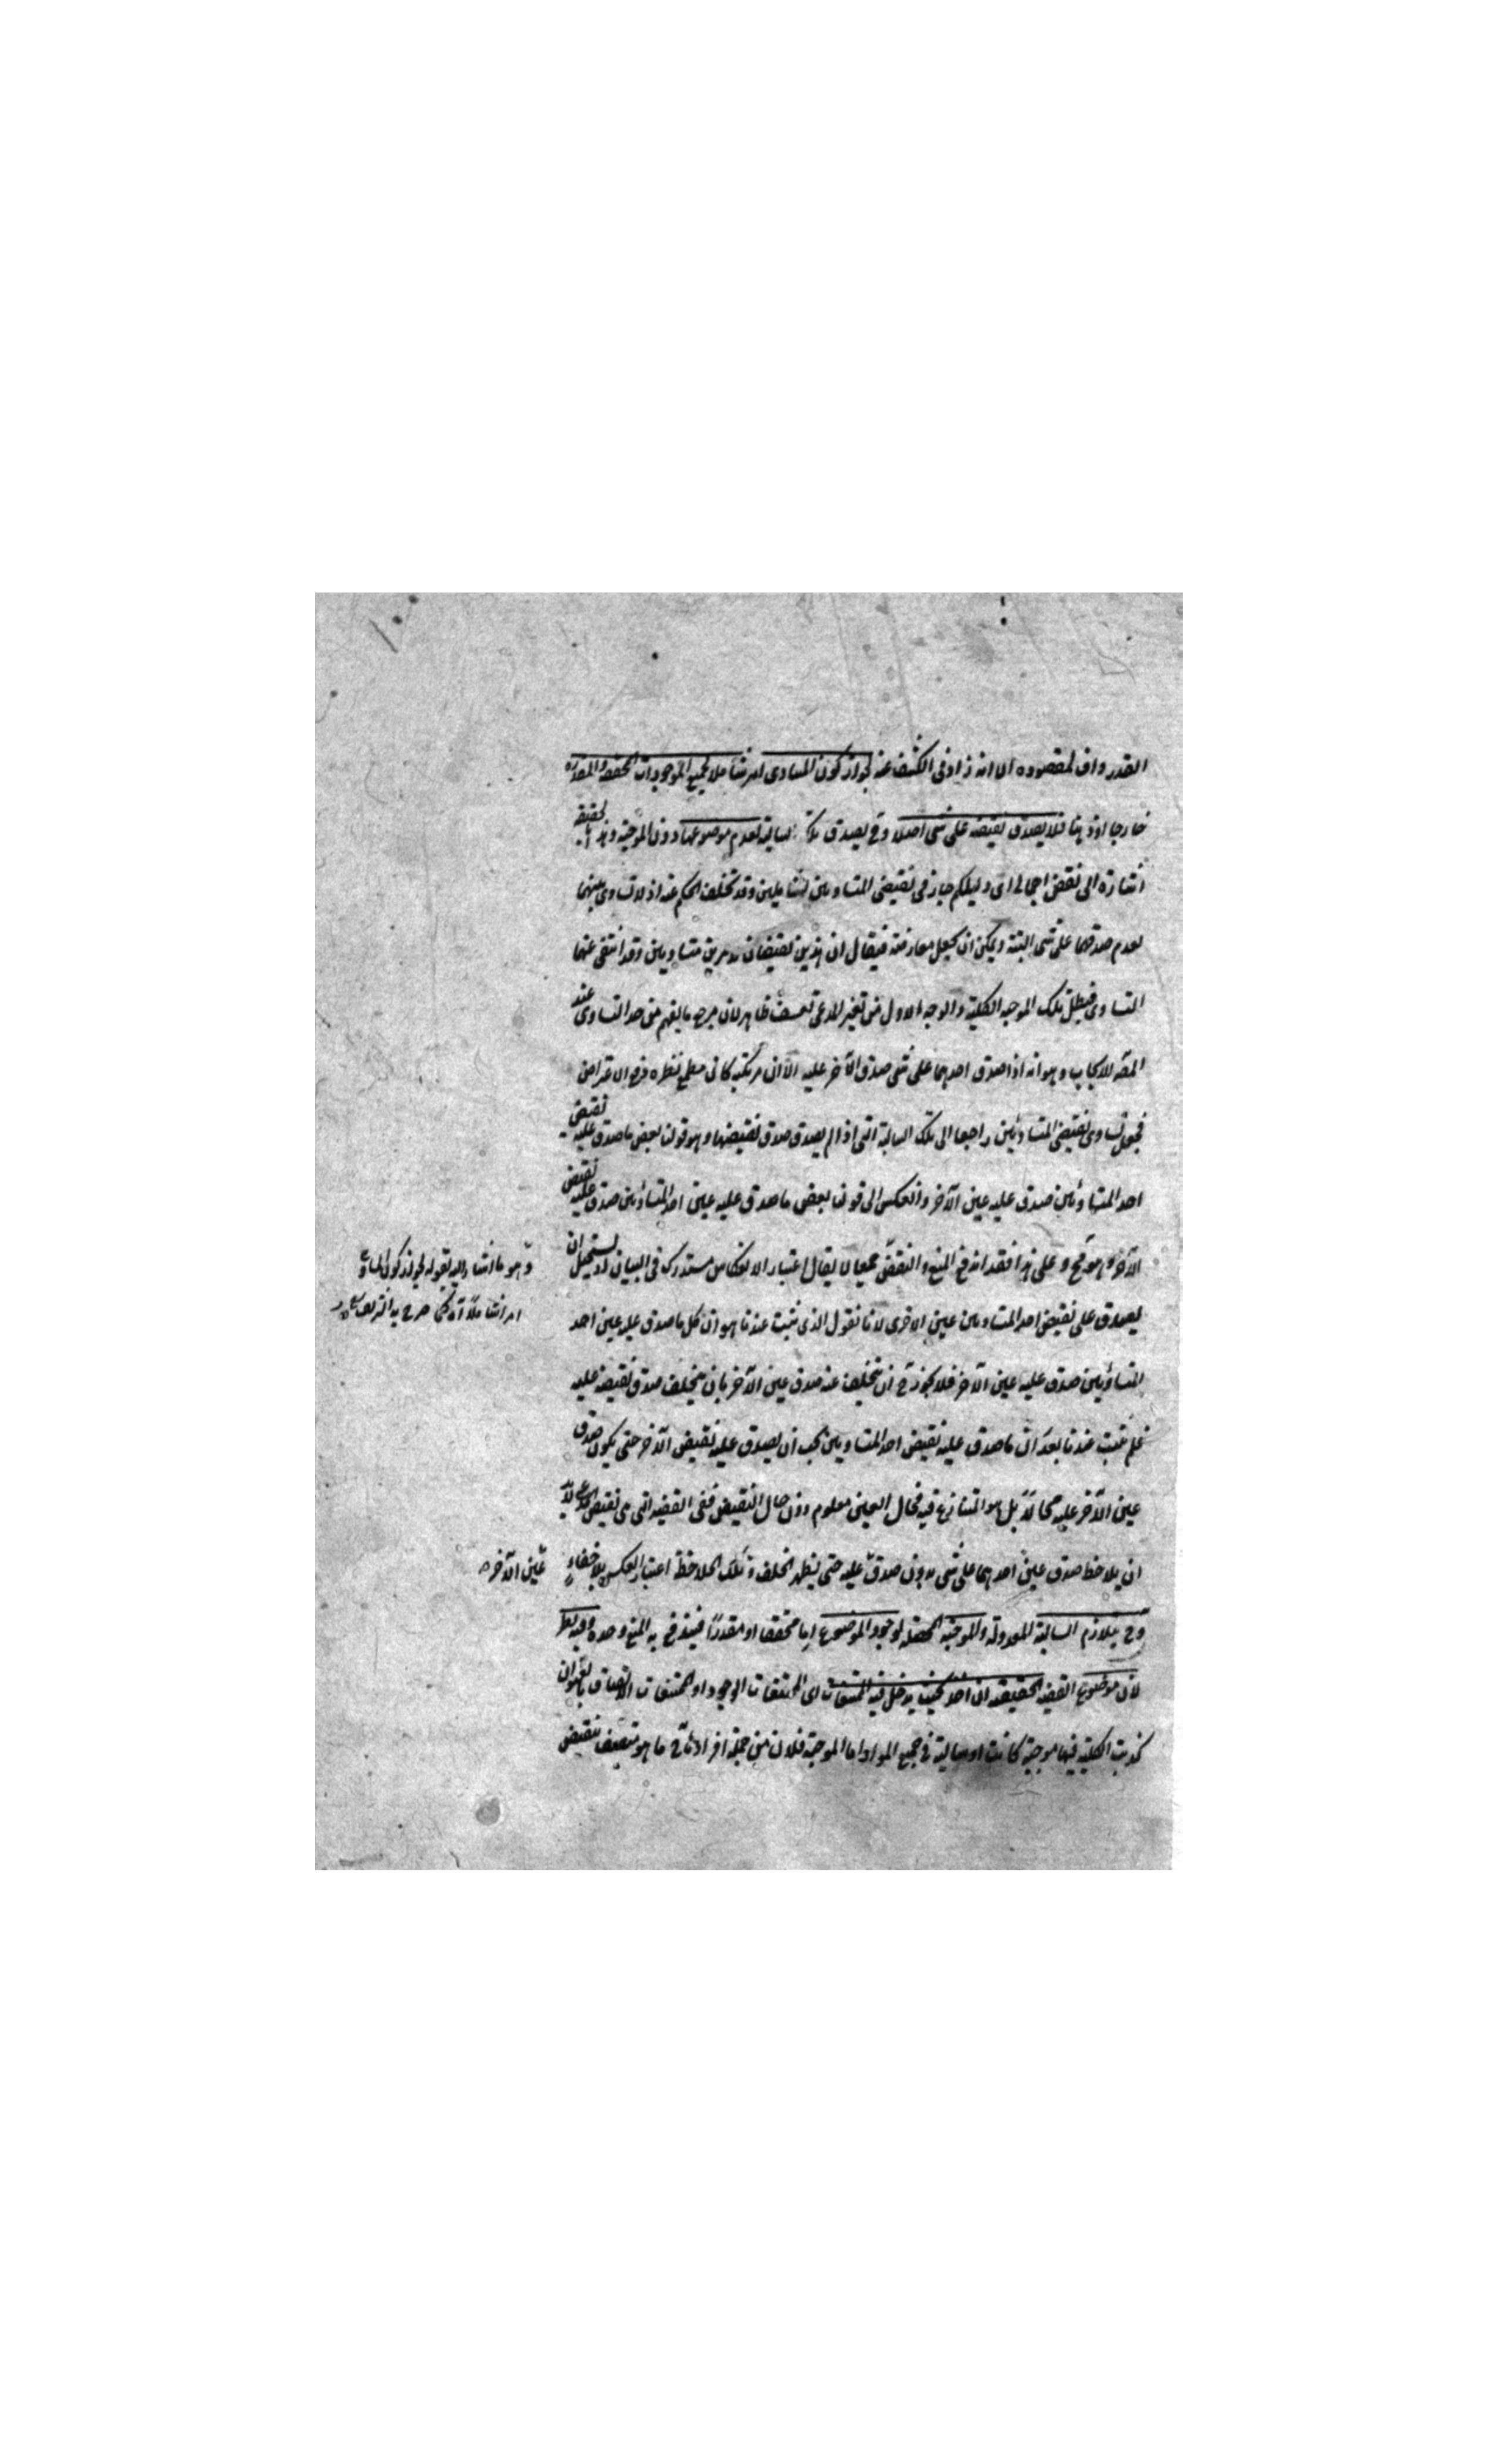 القدر واف لمقصوده الا انه زاد فى الكشف عنه لجواز كون المساوى امر شاملا لجميع الموجودات المحققه والمقدره
خارجا او ذهنا فلا يصدق نقيضه على شى اصلا وح يصدق تلك السالبة لعدم موضوعها دون الموجبة وهذا لحقيقة
اشارة الى نقض اجمالى اى دليلكم جاز فى نقيضى المتساويين الشاملين وقد تخلف الحكم عنه اذ لا تساوى بينهما
لعدم صدقهما على شى البتة ويمكن ان يجعل معارضة فيقال ان هذين نقيضان لامرين متساويين وقد انتفى عنهما
التساوى فبطل تلك الموجبة الكلية والوجه الاول من تغير المدعى تعسف ظاهر لان مرجع ما يفهم من حد التساوى عند
المص للايجاب وهو انه اذا صدق احدهما على شى صدق الآخر عليه الا ان مرتكبه كانى مطمح نظره دفع الاعتراض
فجعل تساوى نقيضى المتساويين راجعا الى تلك السالبة التى اذا لم يصدق صدق نقيضها وهو قولنا بعض ما صدق عليه نقيض
احد المتساويين صدق عليه عين الآخر وانعكس الى قولنا بعض ما صدق عليه عين احد المتساويين صدق عليه نقيض
الآخر وهو مح وعلى هذا فقد اندفع المنع والنقض جميعا لا يقال اعتبار الانعكاس مستدرك فى البيان اذ يستحيل ان
يصدق على نقيض احد المتساويين عين الاخرى لانا نقول الذى ثبت عندنا هو ان كل ما صدق عليه عين احد
المتساويين صدق عليه عين الآخر فلا يجوز ح ان يتخلف عنه صدق عين الآخر بان يتخلف صدق نقيضه عليه
فلم يثبت عندنا بعد ان ما صدق عليه نقيض احد المتساويين يجب ان يصدق عليه نقيض الآخر حتى يكون صدق
عين الآخر عليه محالا بل هو المتنازع فيه فحال العين معلوم دون حال النقيض ففى القضيه التى هى نقيض المدعى لابد
ان يلاحظ صدق عين احدهما على شى بدون صدق عليه حتى يظهر الخلف وتلك الملاحظة اعتبار العكس بلا خفاء
وح يتلازم السالبة المعدولة والموجبه المحصله لوجود الموضوع اما محققا او مقدرا فيندفع به المنع وحده وفيه نظر
لان موضوع القضيه الحقيقيه ان اخذ بحيث يدخل فيه الممتنعات اى الممتنعات الوجود او الممتنعات الاتصاف بالعنوان
كذبت الكليه فيها موجبة كانت او سالبة فى جميع المواد اما الموجبة فلان من جملة افرادها ح ما هو متصف بنقيض
وهو ما اشار اليه بقوله لجواز كون المساوى
امر شاملا آه كما صرح به الشريف
عين الآخر